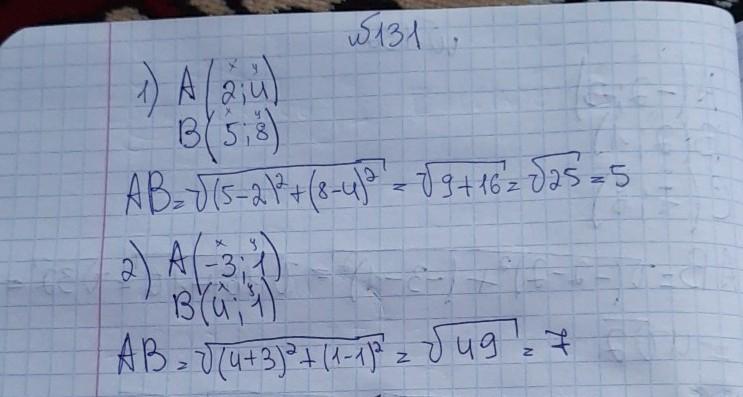 №131.
1) A(2;4)
B(5;8)
AB=√(5-2)²+(8-4)² = √9+16 = √25 = 5
2) A(-3;1)
B(4;1)
AB=√(4+3)²+(1-1)² = √49 = 7